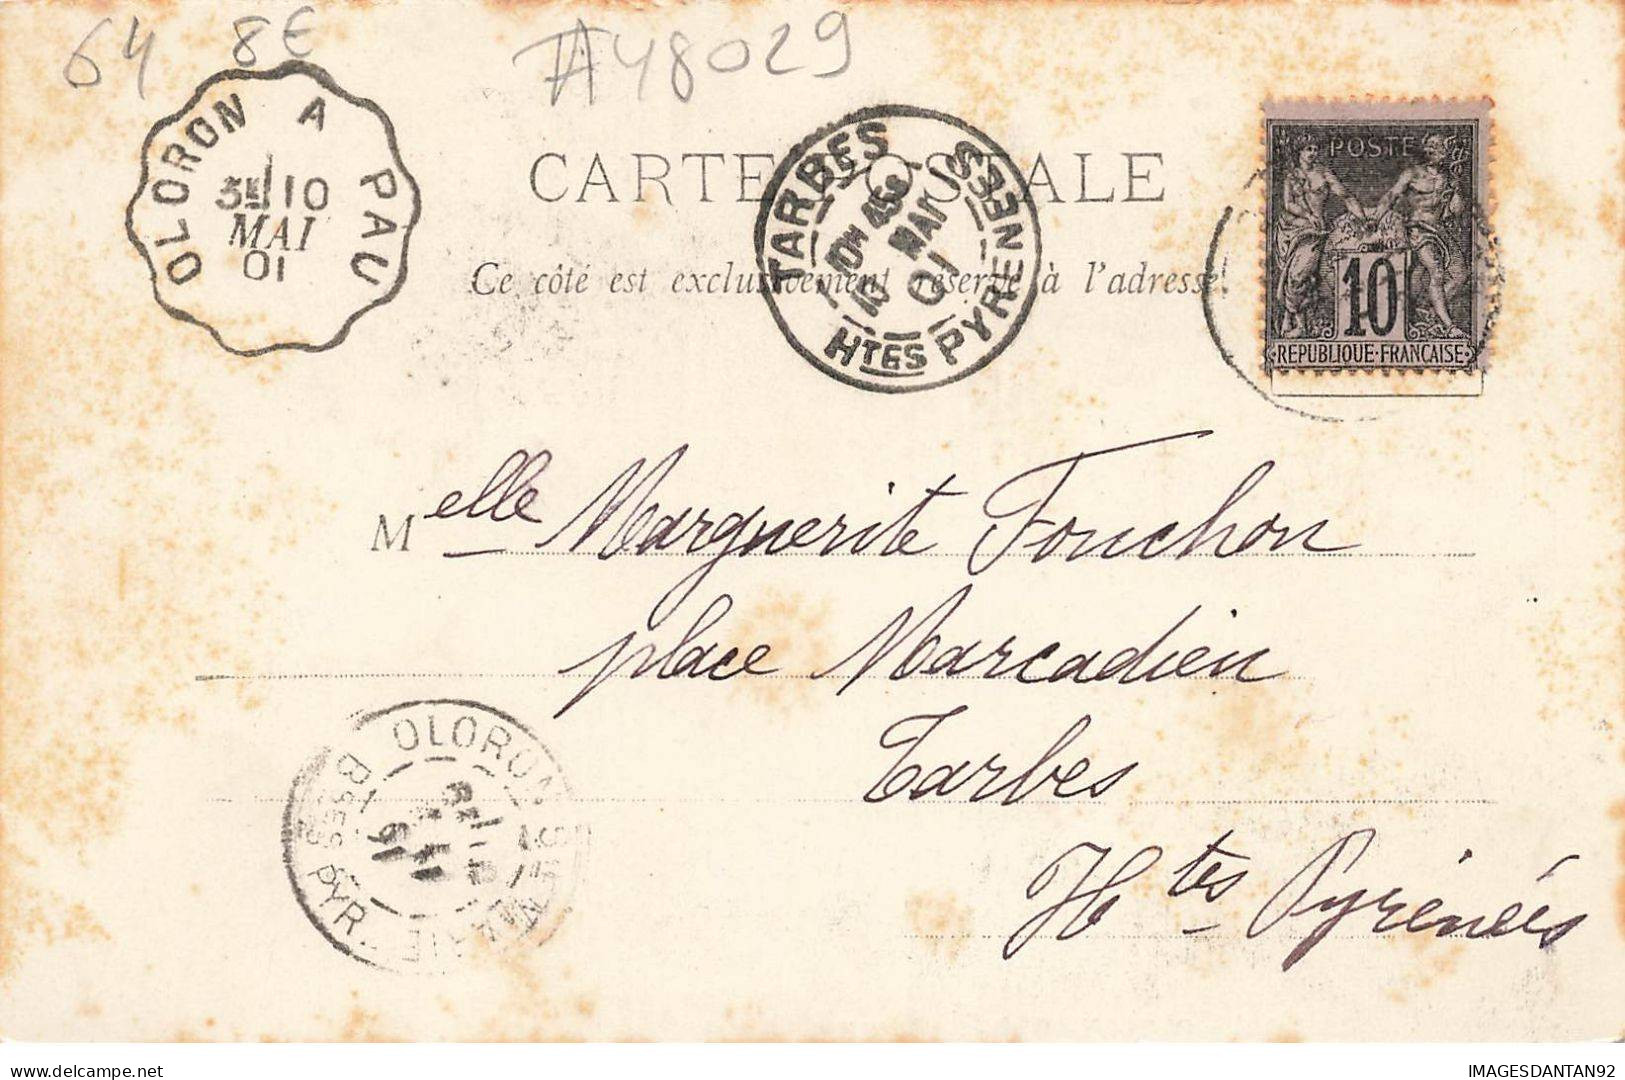 64 8€ #48029
OLORON A PAU
3E 10
MAI
01
CARTE POSTALE
Ce côté est exclusivement réservé à l'adresse.
TARBES
MAI
01
Htes PYRENEES
POSTE
10
REPUBLIQUE·FRANCAISE
Melle Marguerite Fouchon
place Marcadieu
Tarbes
Htes Pyrénées
OLORON Ste MARIE
Bses PYR.
IMAGESDANTAN92